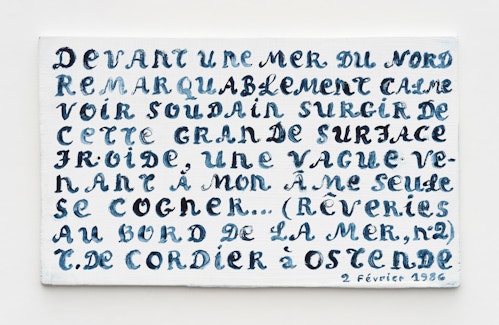 DEVANT UNE MER DU NORD
REMARQUABLEMENT CALME
VOIR SOUDAIN SURGIR DE
CETTE GRANDE SURFACE
FROIDE, UNE VAGUE VE-
NANT À MON ÂME SEULE
SE COGNER... (RÊVERIES
AU BORD DE LA MER, n°2)
T. DE CORDIER à OSTENDE
2 Février 1986